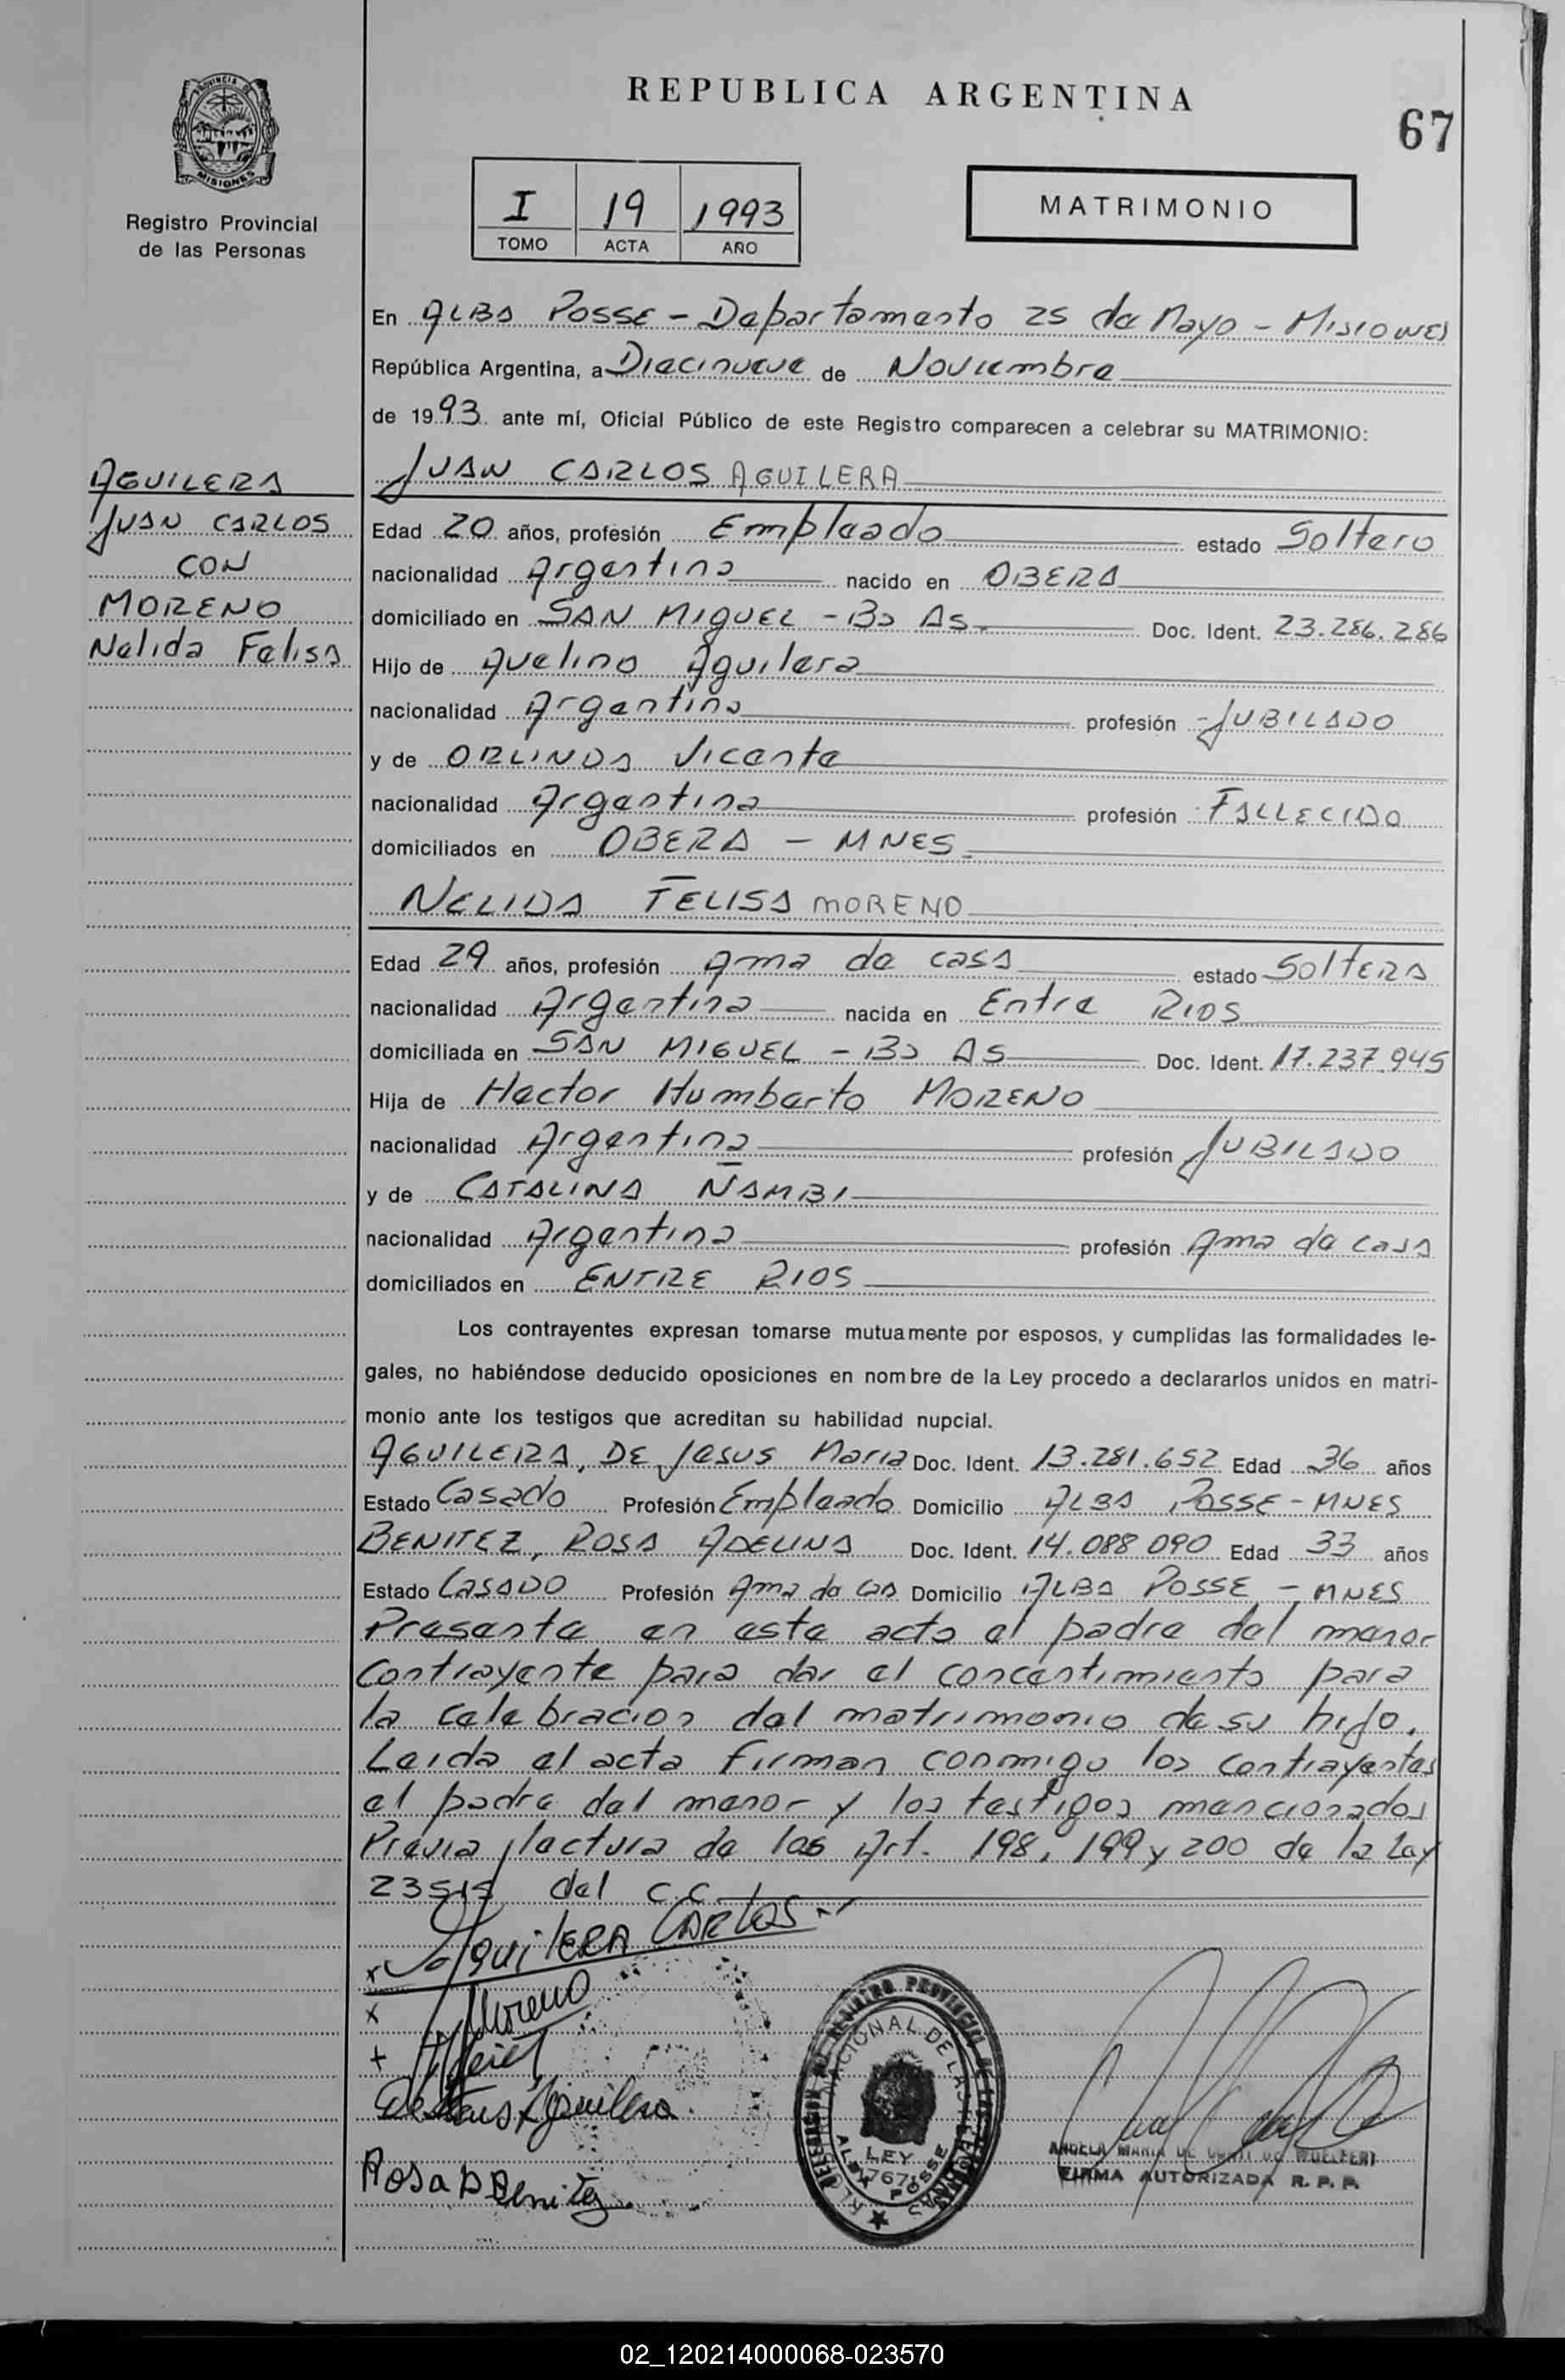 REPUBLICA ARGENTINA
67
PROVINCIA DE
MISIONES
Registro Provincial
de las Personas
I 19 1993
TOMO ACTA AÑO
MATRIMONIO
En ALBA POSSE - Departamento 25 de Mayo - MISIONES
República Argentina, a Diecinueve de Noviembre
de 1993 ante mí, Oficial Público de este Registro comparecen a celebrar su MATRIMONIO:
AGUILERA
JUAN CARLOS
CON
MORENO
Nelida Felisa
JUAN CARLOS AGUILERA
Edad 20 años, profesión Empleado estado Soltero
nacionalidad Argentina nacido en OBERA
domiciliado en SAN MIGUEL - Bs As. Doc. Ident. 23.286.286
Hijo de Avelino Aguilera
nacionalidad Argentina profesión JUBILADO
y de ORLINDA Vicenta
nacionalidad Argentina profesión FALLECIDO
domiciliados en OBERA - MNES.
NELIDA FELISA MORENO
Edad 29 años, profesión Ama de casa estado SolteRA
nacionalidad Argentina nacida en Entre RIOS
domiciliada en SAN MIGUEL - Bs AS Doc. Ident. 17.237.945
Hija de Hector Humberto MORENO
nacionalidad Argentina profesión JUBILADO
y de CATALINA ÑAMBI
nacionalidad Argentina profesión Ama de casa
domiciliados en ENTRE RIOS
Los contrayentes expresan tomarse mutuamente por esposos, y cumplidas las formalidades le-
gales, no habiéndose deducido oposiciones en nombre de la Ley procedo a declararlos unidos en matri-
monio ante los testigos que acreditan su habilidad nupcial.
AGUILERA, DE Jesus Maria Doc. Ident. 13.281.652 Edad 36 años
Estado Casado Profesión Empleado Domicilio ALBA POSSE - MNES
BENITEZ, ROSA ADELINA Doc. Ident. 14.088.090 Edad 33 años
Estado CASADO Profesión Ama de casa Domicilio ALBA POSSE - MNES
Presente en este acto el padre del menor
contrayente para dar el concentimiento para
la celebracion del matrimonio de su hijo.
Leida el acta firman conmigo los contrayentes
el padre del menor y los testigos mencionados
Previa lectura de los Art. 198, 199 y 200 de la Ley
23515 del C.C.
x AGUILERA CARLOS
x Moreno
+
De Jesus Aguilera
Rosa A Benitez
LEY
17671
ALBA POSSE
ANGELA MARIA DE
FIRMA AUTORIZADA R. P. P.
02_120214000068-023570